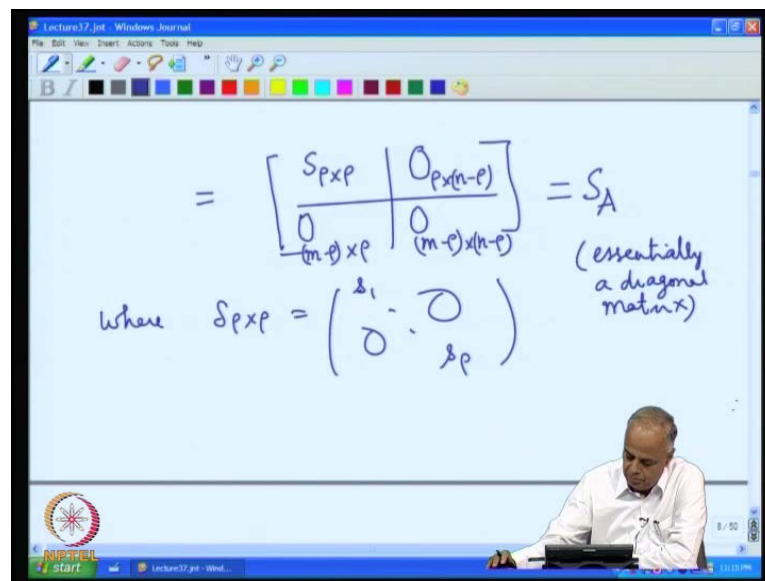 Lecture37.jnt - Windows Journal
File Edit View Insert Actions Tools Help
B I
= [ S_{ρ×ρ} | O_{ρ×(n-ρ)} ] = S_A
[ O_{(m-ρ)×ρ} | O_{(m-ρ)×(n-ρ)} ]
(essentially
a diagonal
matrix)
where S_{ρ×ρ} = ( s_1 . O
O . s_ρ )
8 / 50
NPTEL
start
Lecture37.jnt - Wind...
11:15 PM